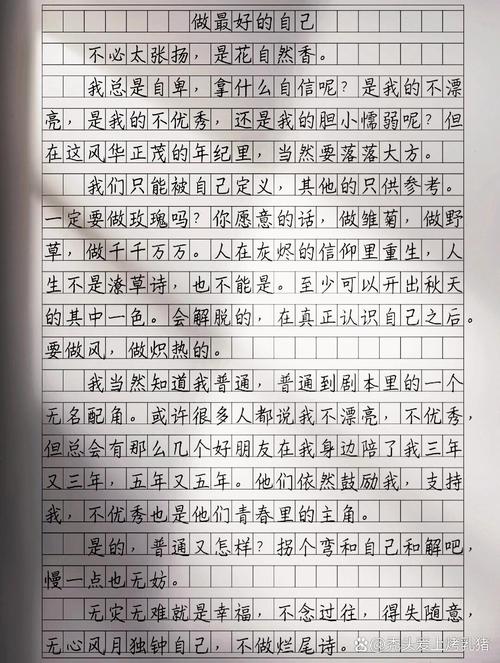 做最好的自己
不必太张扬，是花自然香。
我总是自卑，拿什么自信呢？是我的不漂
亮，是我的不优秀，还是我的胆小懦弱呢？但
在这风华正茂的年纪里，当然要落落大方。
我们只能被自己定义，其他的只供参考。
一定要做玫瑰吗？你愿意的话，做雏菊，做野
草，做千千万万。人在灰烬的信仰里重生，人
生不是潦草诗，也不能是。至少可以开出秋天
的其中一色。会解脱的，在真正认识自己之后。
要做风，做炽热的。
我当然知道我普通，普通到剧本里的一个
无名配角。或许很多人都说我不漂亮，不优秀，
但总会有那么几个好朋友在我身边陪了我三年
又三年，五年又五年。他们依然鼓励我，支持
我，不优秀也是他们青春里的主角。
是的，普通又怎样？拐个弯和自己和解吧，
慢一点也无妨。
无灾无难就是幸福，不念过往，得失随意，
无心风月独钟自己，不做烂尾诗。
秃头爱上烤乳猪